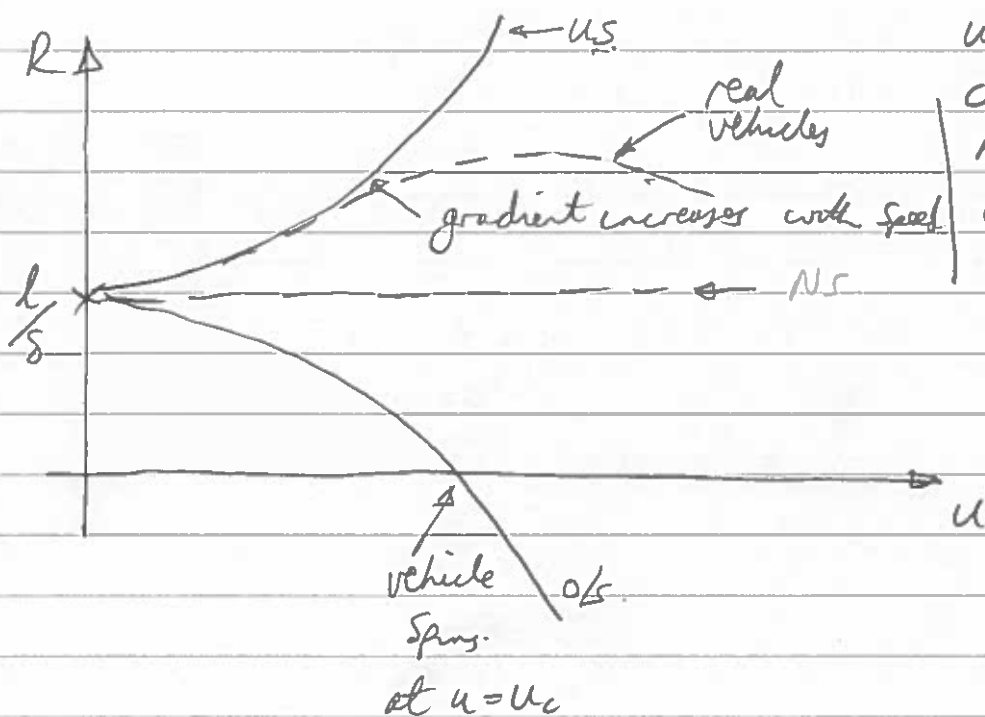 R
U.S.
real
vehicles
gradient increases with speed
l/δ
NS
u
vehicle
spins.
at u = uc
o/s.
u